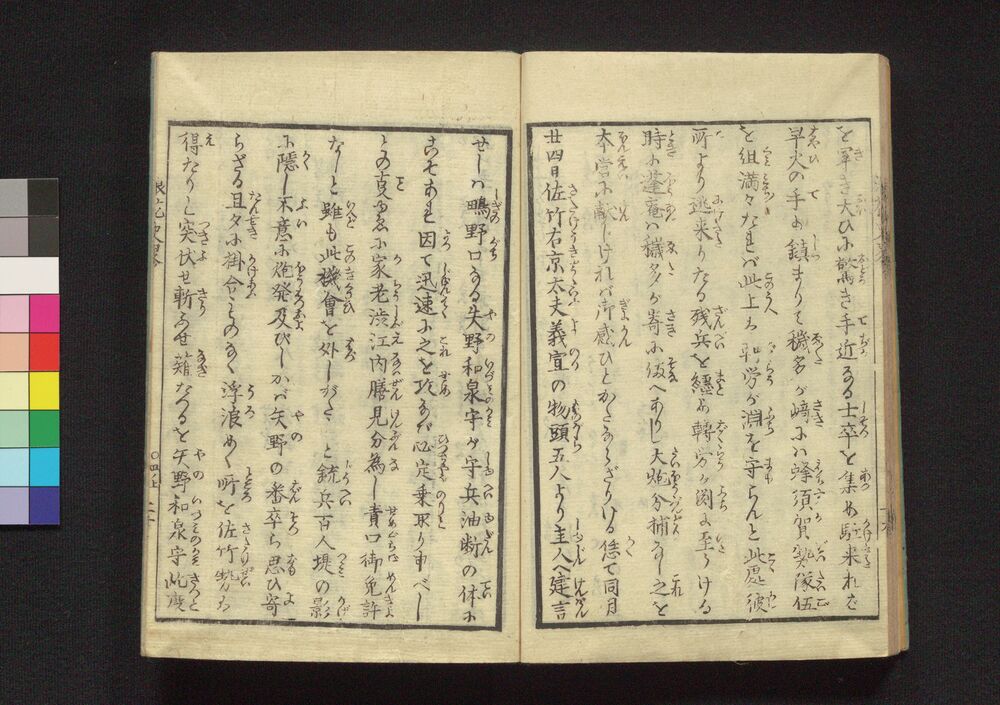 を率き大ひに驚き手近なる士卒を集め駈来れば
早火の手は鎮まりて穢多が﨑には蜂須賀勢隊伍
を組満々たれば此上は轉労が淵を守らんと此處彼
所より逃来りたる残兵を纒め轉労が淵に至りける
時に蓬庵は穢多が﨑に備へありし大炮分捕なし之を
本営に献じければ御感ひとかたならざりける偖て同月
廿四日佐竹右京太夫義宣の物頭五人より主人へ建言
せしは鴫野口なる矢野和泉守が守兵油断の体に
こそあれ因て迅速に之を攻なば必定乗取り申べし
との事ゆゑに家老渋江内膳見分為し責口御免許
なしと雖も此機會を外しがたしと銃兵百人堤の影
に隠し不意に炮発及びしかば矢野の番卒ら思ひ寄
らざる且夕に掛合
浮浪めく所を佐竹勢は
得たりと突伏せ斬ふせ薙たつると矢野和泉守此度